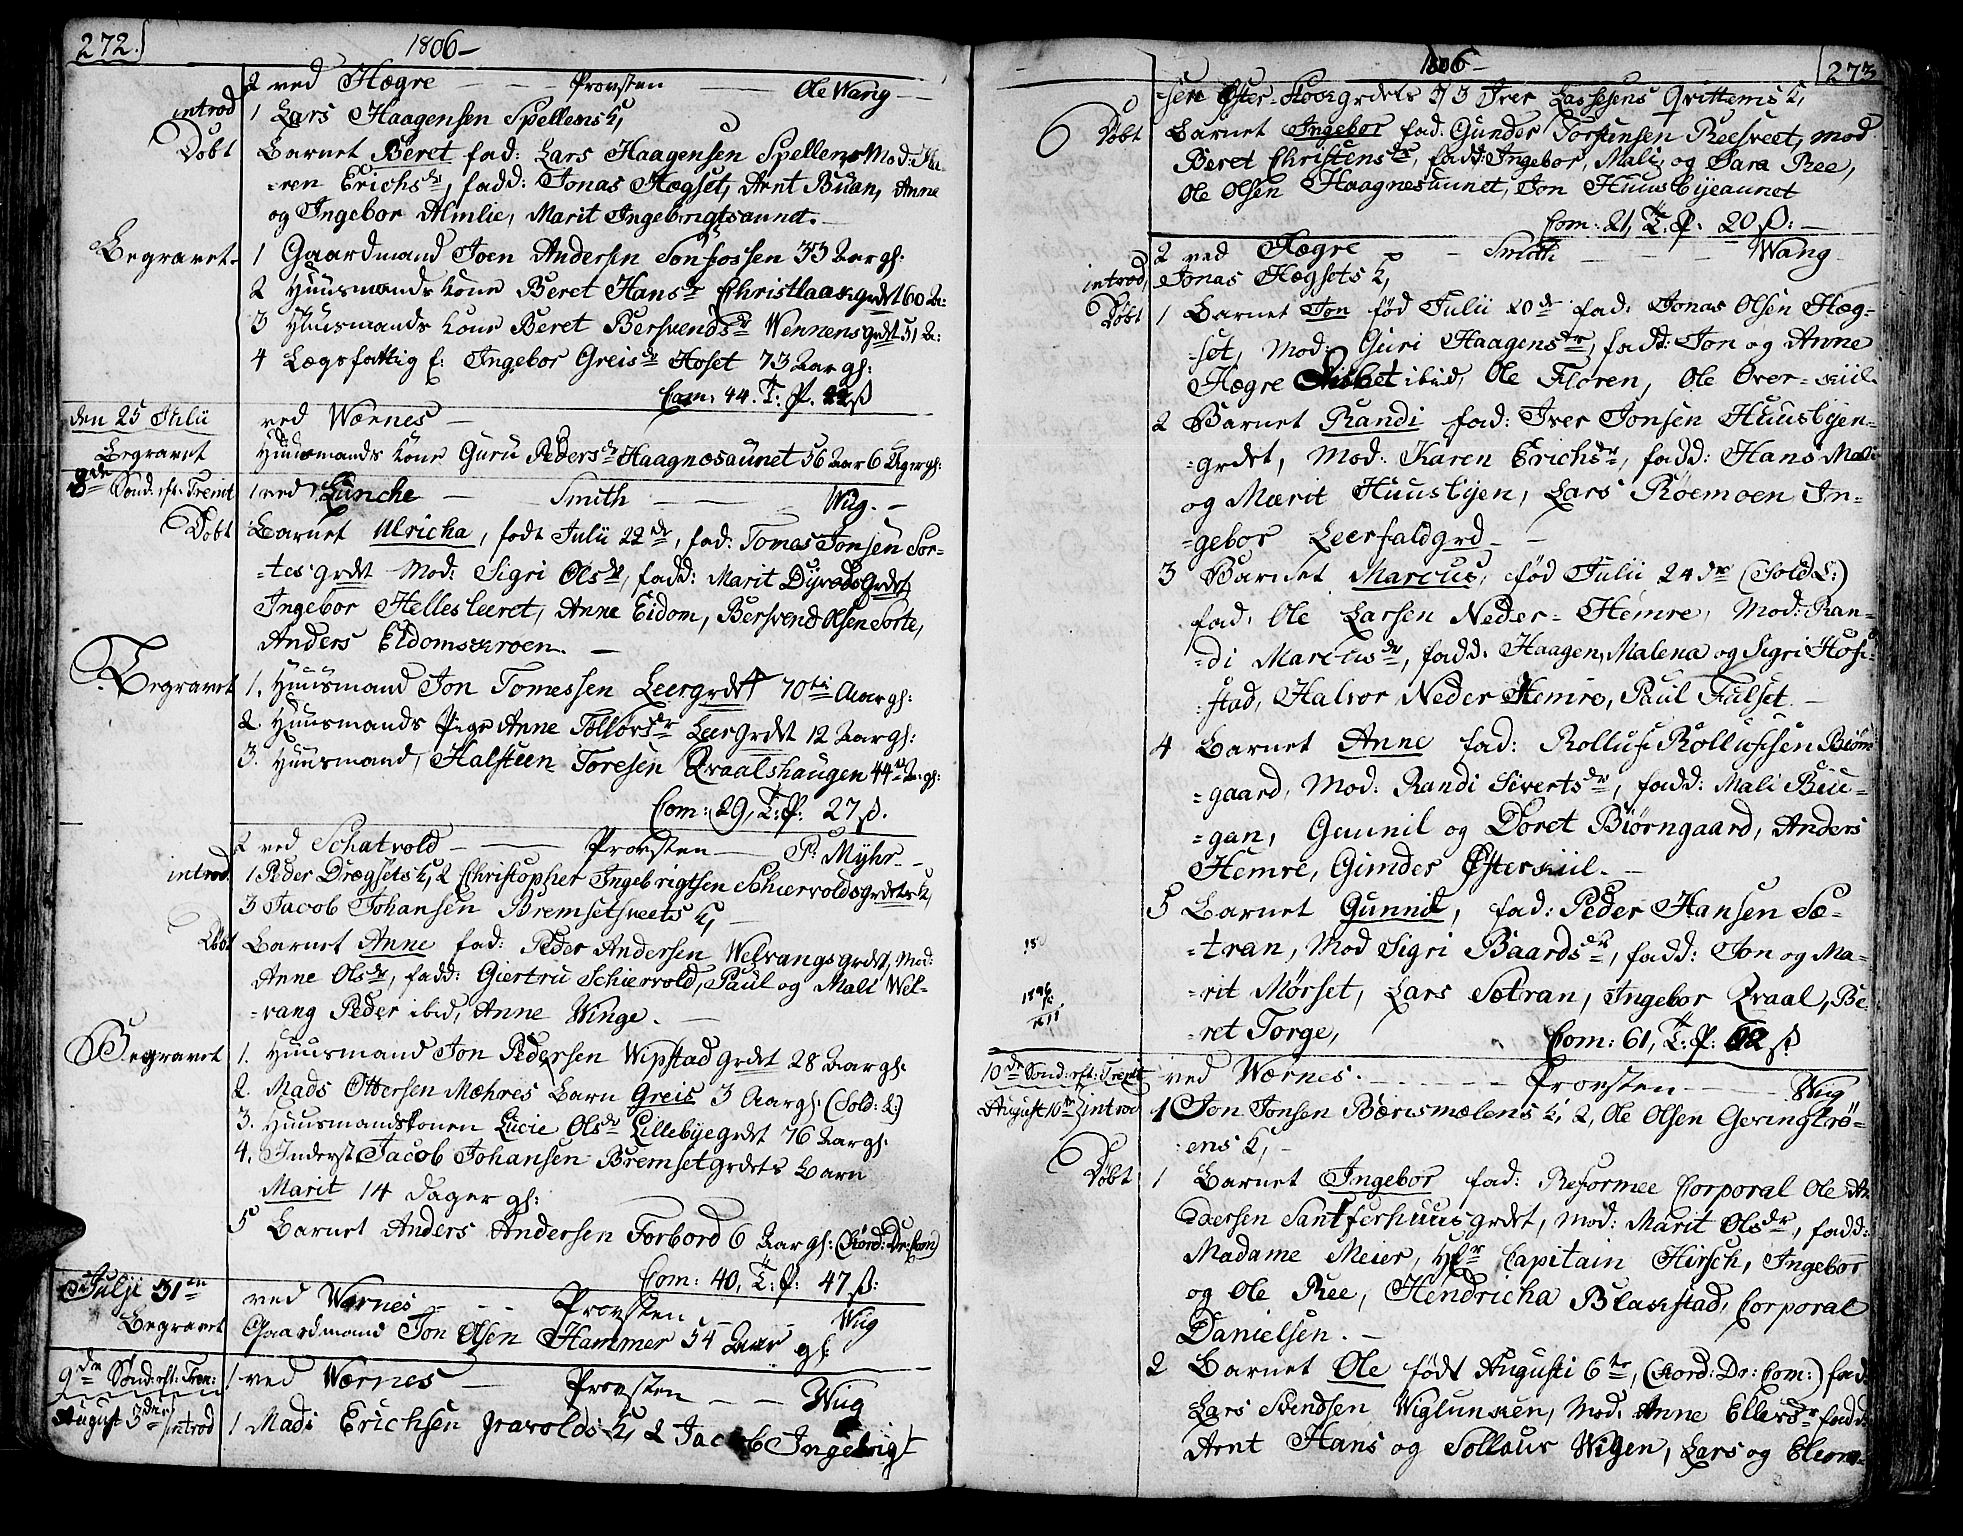 272.
1806 –
2 ved Hægre — Provsten — Ole Wang —
introd 1 Lars Haagensen Spellens K,
Døbt Barnet Beret fad: Lars Haagensen Spellens Mod: Ka-
-ren Erichsdr, fadd: Jonas Hægset, Arnt Buan, Anne
og Ingebor Almlie, Marit Ingebrigtsaunet.
Begravet. 1 Gaardmand Joen Andersen Sonfossen 33 Aar gl:
2 Huusmands Kone Beret Hansdr Christlaasgrdet 60 A:
3 Huusmands Kone Beret Bersvendsdr Wennensgrdet 51 A:
4 Lægsfattig E: Ingebor Greisdr Hoset 73 Aar gl:
Com: 44. T: P. 22 ß
den 25 Julii ved Wærnes —
Begravet Huusmands Kone Guru Pedersdr Haagnesaunet 56 Aar 6 Uger gl:
8de Sond: eft: Trenit 1 ved Lunche — Smith — Wiig. —
Døbt Barnet Ulricha, født Julii 22de, fad: Tomas Jonsen Sor-
-tes grdet Mod: Sigri Olsdr, fadd: Marit Dyrodsgrdet
Ingebor Hellesleeret, Anne Eidom, Bersvend Olsen Sorte,
Anders Eldomskroen. —
Begravet 1. Huusmand Jon Tomessen Leergrdet 70ti Aar gl:
2. Huusmands Pige Anne Tolløvsdr Leergrdet 12 Aar gl:
3. Huusmand, Halsteen Toresen Qvaalshaugen 44 A: gl:
Com: 29, T: P: 27 ß.
2 ved Schatvold — Provsten — P: Myhr —
introd. 1 Peder Drægsets K, 2 Christopher Ingebrigtsen Schiervoldsgrdets K,
3 Jacob Johansen Bremsetsveets K,
Døbt Barnet Anne fad: Peder Andersen Welvangsgrdet, Mod:
Anne Olsdr, fadd: Giertru Schiervold, Paul og Mali Wel-
-vang Peder ibid, Anne Winge. —
Begravet 1. Huusmand Jon Pedersen Wipstadgrdet 28 Aar gl:
2. Mads Ottersen Mæhres Barn Greis 3 Aar gl: (Sold: L:)
3. Huusmandskonen Lucie Olsdr Lillebyegrdet 76 Aar gl:
4. Inderst Jacob Johansen Bremsetgrdets Barn
Marit 14 Dager gl:
5 Barnet Anders Andersen Forbord 6 Aar gl: (Nord: Dr: Com)
Com: 40, T: P: 47 ß:
Julii 31te ved Wærnes — Provsten Wiig
Begravet Gaardmand Jon Olsen Hammer 54 Aar gl:
9de Sønd: eft: Tren: 1 ved Wærnes — Provsten — Wiig
August 3die introd 1 Mads Erichsen Gravolds K, 2 Jacob Ingebrigt
1806 –
273
-sen Øster-Kookgrdets K, 3 Iver Lassesens Qvittems K,
6 Døbt Barnet Ingebor fad: Gunder Torstensen Reesveet, Mod
Beret Christensdr, fadd: Ingebor, Mali, og Sara Ree,
Ole Olsen Haagnesaunet, Jon Huusbyeaunet
Com: 21, T. P. 20 ß: —
2 ved Hægre — Smith — Wang
introd, Jonas Hægsets K,
Døbt 1 Barnet Jon fød Julii 20de fad: Jonas Olsen Hæg-
-set, Mod: Guri Haagensdr, fadd: Jon og Anne
Hægre ibid, Ole Floren, Ole Over-kiil.
2 Barnet Randi fad: Iver Jonsen Huusbyen-
-grdet, Mod: Karen Erichsdr, fadd: Hans Mali
og Marit Huusbyen, Lars Røemoen In-
-gebor Leerfaldgrd —
3 Barnet Marcus, fød Julii 24de (Sold L:)
fad: Ole Larsen Neder-Hemre, Mod: Ran-
-di Marcusdr, fadd: Haagen, Malena og Sigri Hofs-
-stad, Halvor Neder Hemre, Paul Fulset. —
4 Barnet Anne fad: Rolluf Rollufsen Biørn-
-gaard, Mod: Randi Sivertsdr, fadd: Mali Buu-
-gan, Gaunil og Doret Biørngaard, Anders
Hemre, Gunder Østerkiil. —
5 Barnet Gunnil, fad: Peder Hansen Sæ-
-tran, Mod Sigri Baardsdr, fadd: Jon og Ma-
-rit Mørset, Lars Sætran, Ingebor Qvaal, Be-
-ret Torge, Com: 61, T: P: 62 ß
10de Sønd: eft: Trenit ved Wærnes. — Provsten — Wiig
August 10de introd 1 Jon Jonsen Bærismælens K, 2, Ole Olsen Gevingkrø-
-ens K, —
Døbt 1 Barnet Ingebor fad: Reformee Corporal Ole An-
dersen Sandferhuusgrdet, Mod: Marit Olsdr, fadd:
Madame Meier, Hr Capitain Hirsch, Ingebor
og Ole Ree, Hendricha Blakstad, Corporal
Danielsen. —
2 Barnet Ole født Augusti 6te, (Nord: Dr: Com:) fad:
Lars Svendsen Wiglunsken, Mod: Anne Ellevsdr fadd:
Arnt Hans og Sollaus Wigen, Lars og Eleono-